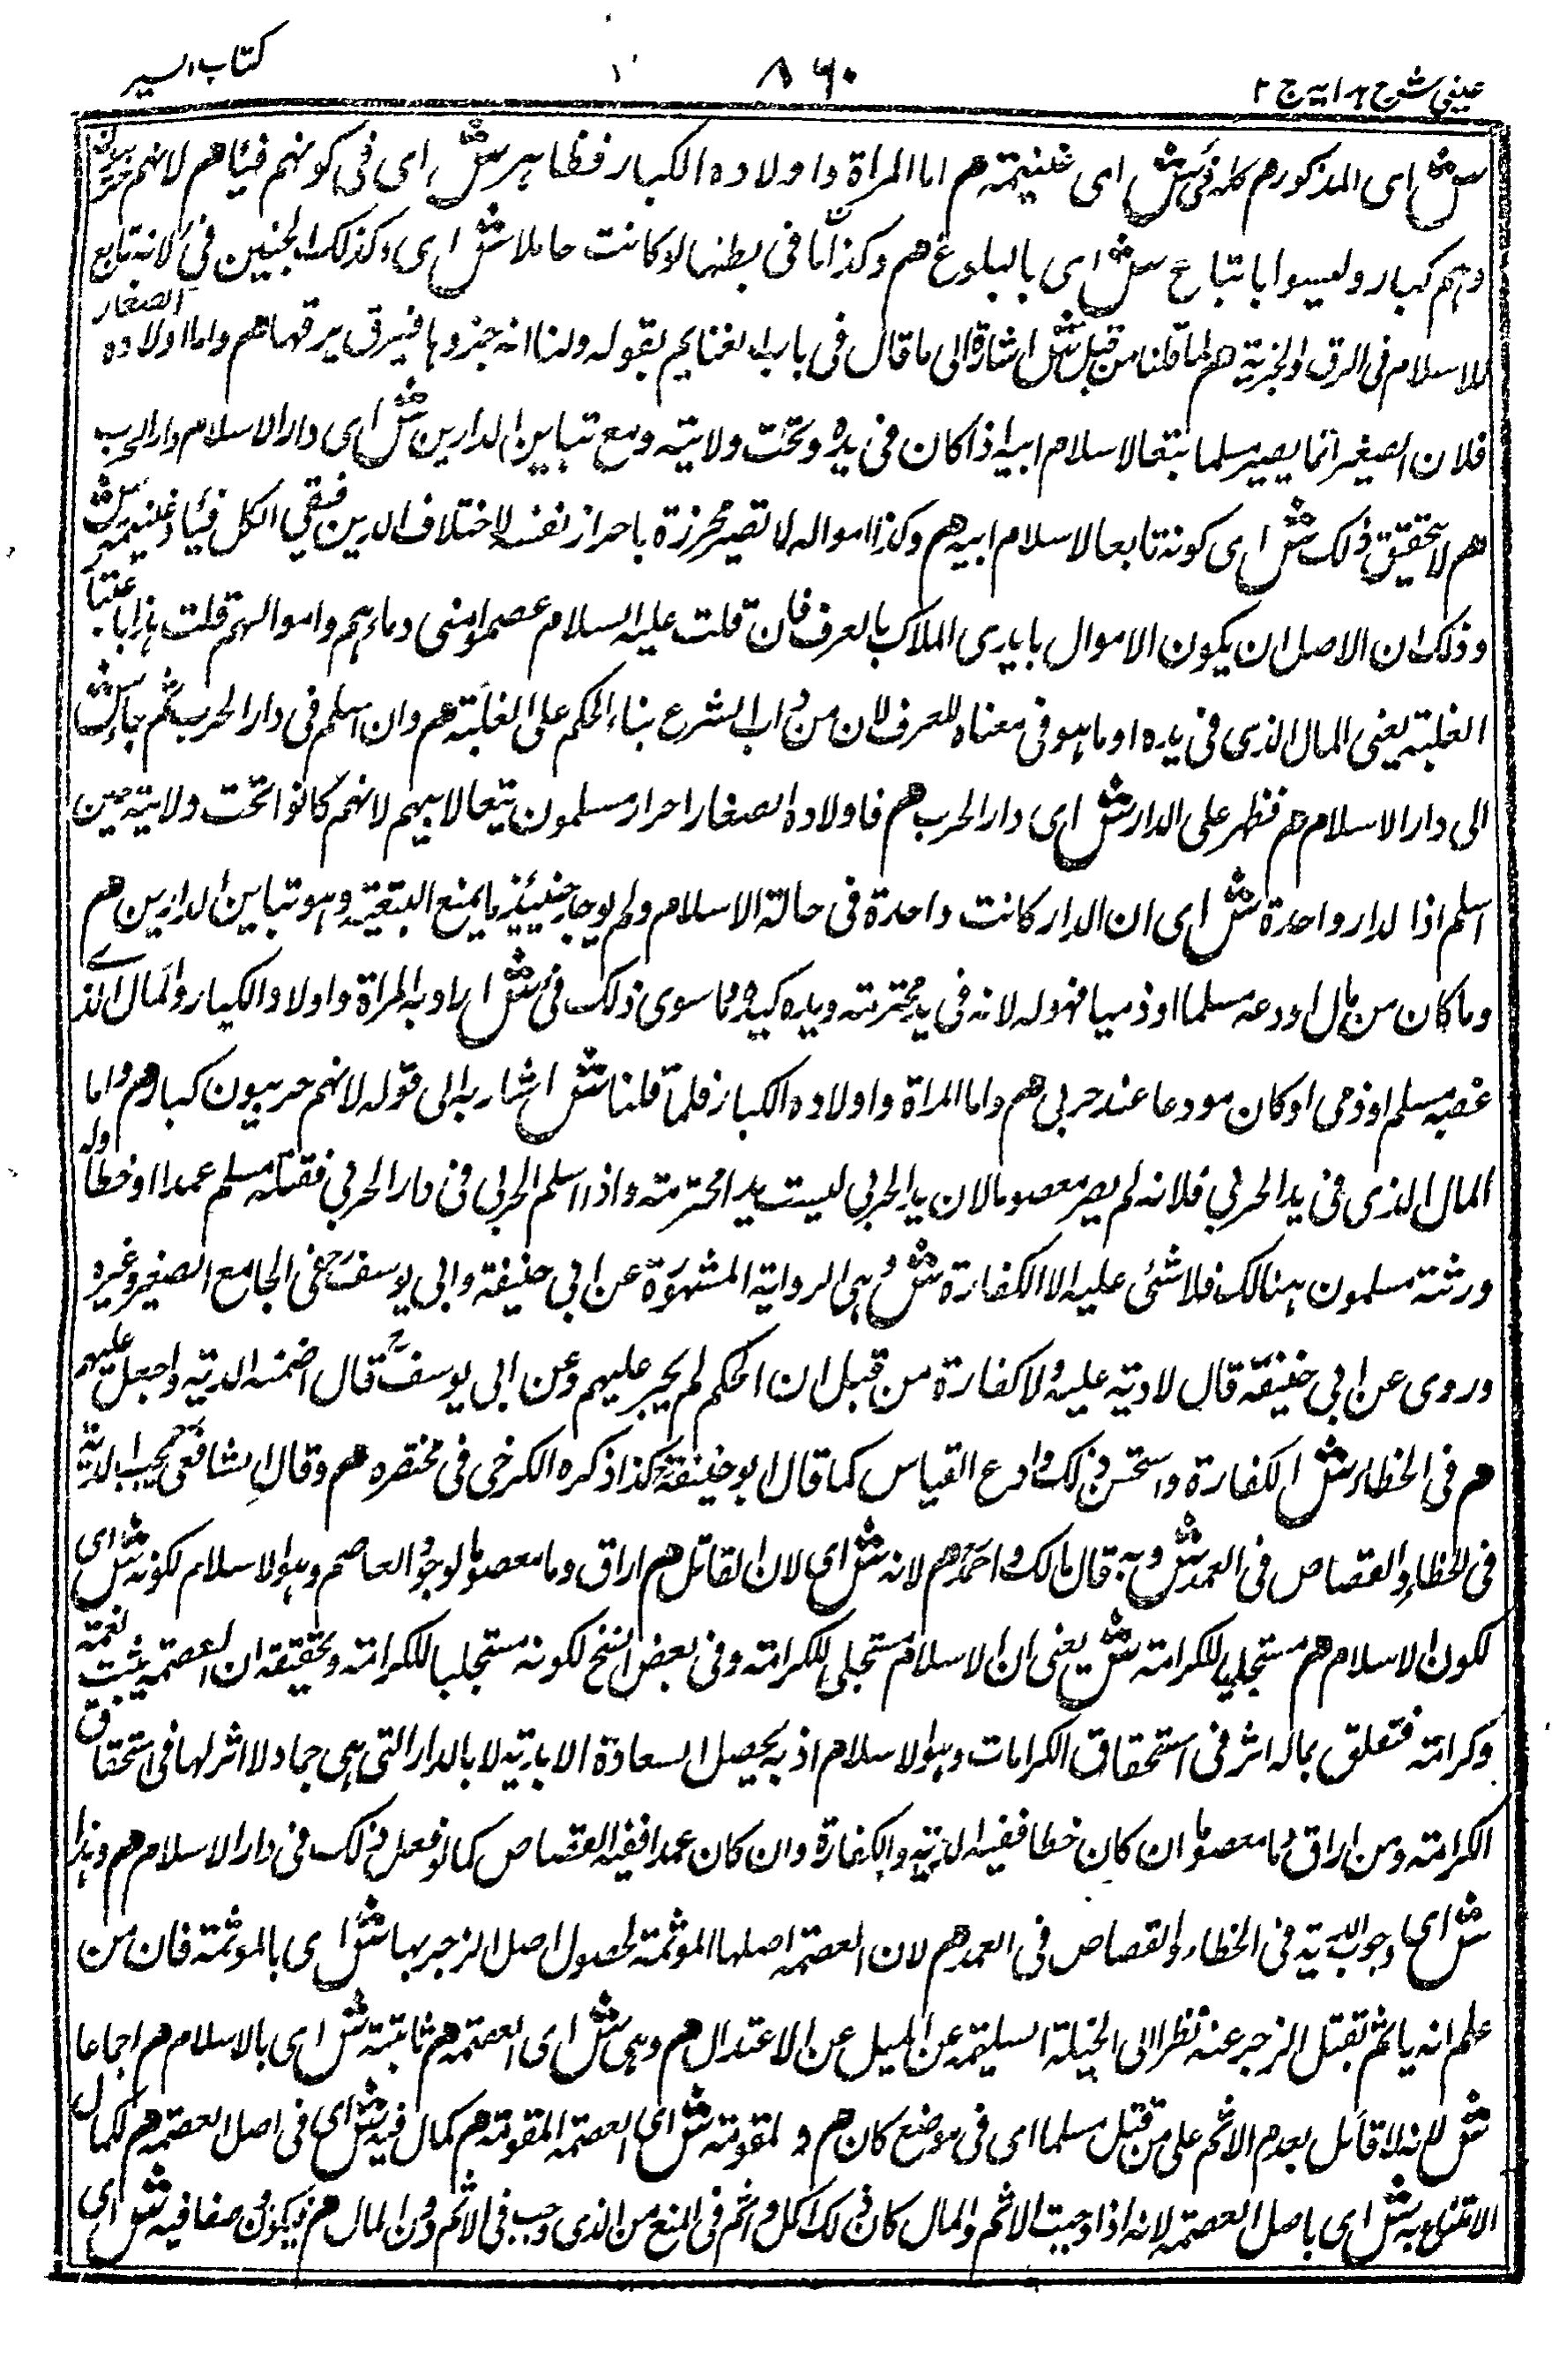 عینی شرح ہدایہ ج ۲
۸۶۰
کتاب السیر
ش ای المذکور هم کله فیٔ ش ای غنیمة هم اما المراة واولاده الکبار فظاهر ش ای فی کونهم فیئا هم لانهم حربیون
وهم کبار ولیسوا باتباع ش ای بالبلوغ هم وکذا ما فی بطنها لو کانت حاملا ش ای وکذلک الجنین فیٔ لانه تابع
للاسلام فی الرق والحریة هم لما قلنا من قبل ش اشارة الی ما قال فی باب الغنایم بقوله ولنا انه جزوها فیرق برقها هم واما اولاده الصغار
فلان الصغیر انما یصیر مسلما تبعا لاسلام ابیه اذا کان فی یده وتحت ولایته ومع تباین الدارین ش ای دار الاسلام ودار الحرب
هم لا یتحقق ذلک ش ای کونه تابعا لاسلام ابیه هم وکذا امواله لا تصیر محرزة باحراز نفسه لاختلاف الدارین فبقی الکل فیئا وغنیمة ش
وذلک ان الاصل ان یکون الاموال بایدی الملاک بالعرف فان قلت علیه السلام عصموا منی دماءهم واموالهم قلت هذا باعتبار
الغلبة یعنی المال الذی فی یده او ما هو فی معناه للعرف لان من داب الشرع بناء الحکم علی الغلبة هم وان اسلم فی دار الحرب ثم جاء ش
الی دار الاسلام هم فظهر علی الدار ش ای دار الحرب هم فاولاده الصغار احرار مسلمون تبعا لابیهم لانهم کانوا تحت ولایته حین
اسلم اذا الدار واحدة ش ای ان الدار کانت واحدة فی حالة الاسلام ولم یوجد حینئذ ما یمنع التبعیة وهو تباین الدارین هم
وما کان من مال اودعه مسلما او ذمیا فهو له لانه فی ید محترمة ویده کیده وما سوی ذلک فیٔ ش اراد به المراة واولاد الکبار والمال الذی
غصبه مسلم او ذمی او کان مودعا عند حربی هم واما المراة واولاده الکبار فلما قلنا ش اشار به الی قوله لانهم حربیون کبار هم واما
المال الذی فی ید الحربی فلانه لم یصر معصوما لان ید الحربی لیست یدا محترمة واذا اسلم الحربی فی دار الحربی فقتله مسلم عمدا او خطأ وله
ورثة مسلمون هنالک فلا شئی علیه الا الکفارة ش وهی الروایة المشهورة عن ابی حنیفة وابی یوسف فی الجامع الصغیر وغیره
وروی عن ابی حنیفة قال لا دیة علیه ولا کفارة من قبل ان الحکم لم یجر علیهم وعن ابی یوسف قال اضمنه الدیة واجعل علیه
هم فی الخطاء ش الکفارة واستحسن ذلک وادع القیاس کما قال ابو حنیفة کذا ذکره الکرخی فی مختصره هم وقال الشافعی یجب الدیة
فی الخطاء والقصاص فی العمد ش وبه قال مالک واحمد هم لانه ش ای لان القاتل هم اراق دما معصوما لوجود العاصم وهو الاسلام لکونه ش ای
لکون الاسلام هم مستجلبا للکرامة ش یعنی ان الاسلام مستجلبی للکرامة وفی بعض النسخ لکونه مستجلبا للکرامة وتحقیقه ان العصمة یثبت نعمة
وکرامة فتعلق بماله اثر فی استحقاق الکرامات وهو الاسلام اذ به یحصل السعادة الابدیة لا بالدار التی هی جماد لا اثر لها فی استحقاق
الکرامة ومن اراق دما معصوما ان کان خطا ففیه الدیة والکفارة وان کان عمدا ففیه القصاص کما لو فعل ذلک فی دار الاسلام هم وهذا
ش ای وجوب الدیة فی الخطاء والقصاص فی العمد هم لان العصمة اصلها المؤثمة لحصول اصل الزجر بها ش ای بالموثمة فان من
علم انه یاثم بقتل الزجر عنه نظرا الی الجبلة السلیمة عن المیل عن الاعتدال هم وهی ش ای العصمة هم ثابتة ش ای بالاسلام هم اجماعا
ش لانه لا قائل بعدم الاثم علی من قتل مسلما ای فی موضع کان هم والمقومة ش ای العصمة المقومة هم کمال فیه ش ای فی اصل العصمة هم لکمال
الامتناع به ش ای باصل العصمة لانه اذا وجبت الاثم والمال کان ذلک اکمل واتم فی المنع من الذی وجب فی الاثم دون المال هم فیکون وصفا فیه ش ای